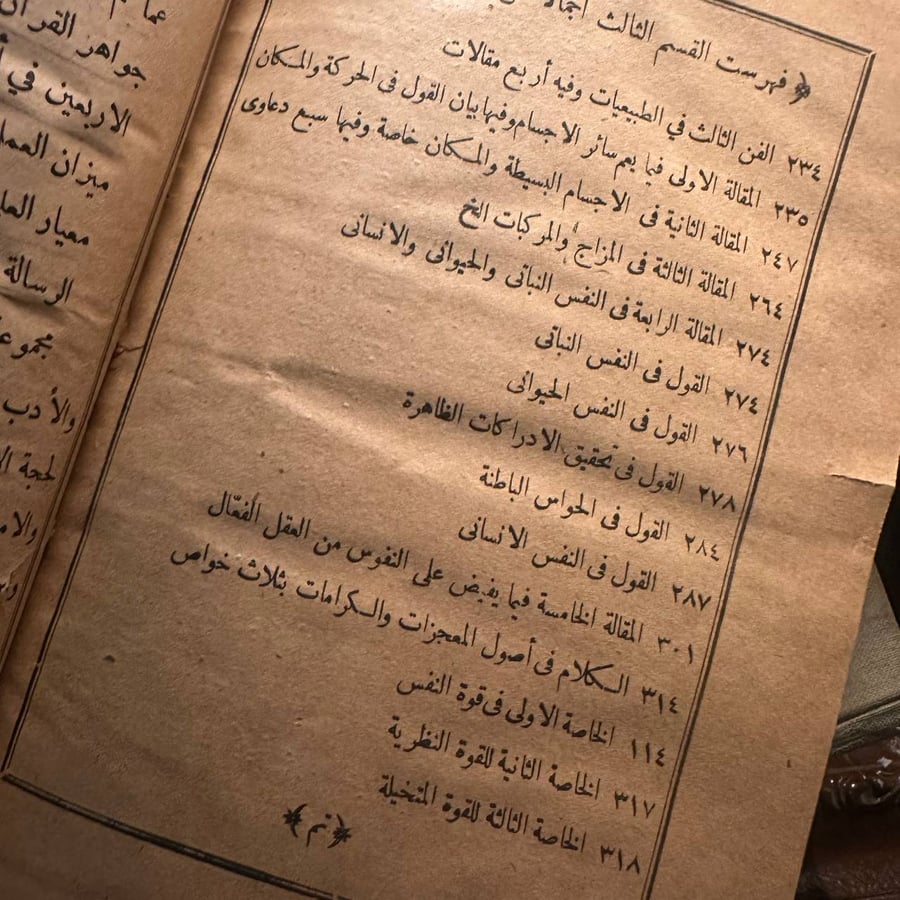 ﴿ فهرست القسم الثالث
٢٣٤ الفن الثالث في الطبيعيات وفيه أربع مقالات
٢٣٥ المقالة الاولى فيما يعم سائر الاجسام وفيها بيان القول فى الحركة والمكان
٢٤٧ المقالة الثانية فى الاجسام البسيطة والمكان خاصة وفيها سبع دعاوى
٢٦٤ المقالة الثالثة فى المزاج والمركبات الخ
٢٧٤ المقالة الرابعة فى النفس النباتى والحيوانى والانسانى
٢٧٤ القول فى النفس النباتى
٢٧٦ القول فى النفس الحيوانى
٢٧٨ القول فى تحقيق الادراكات الظاهرة
٢٨٤ القول فى الحواس الباطنة
٢٨٧ القول فى النفس الانسانى
٣٠١ المقالة الخامسة فيما يفيض على النفوس من العقل الفعّال
٣١٤ الكلام فى أصول المعجزات والكرامات بثلاث خواص
١١٤ الخاصة الاولى فى قوة النفس
٣١٧ الخاصة الثانية للقوة النظرية
٣١٨ الخاصة الثالثة للقوة المتخيلة
﴿ تم ﴾
جواهر القرآن
الاربعين في
ميزان العمل
معيار
الرسالة
والأدب